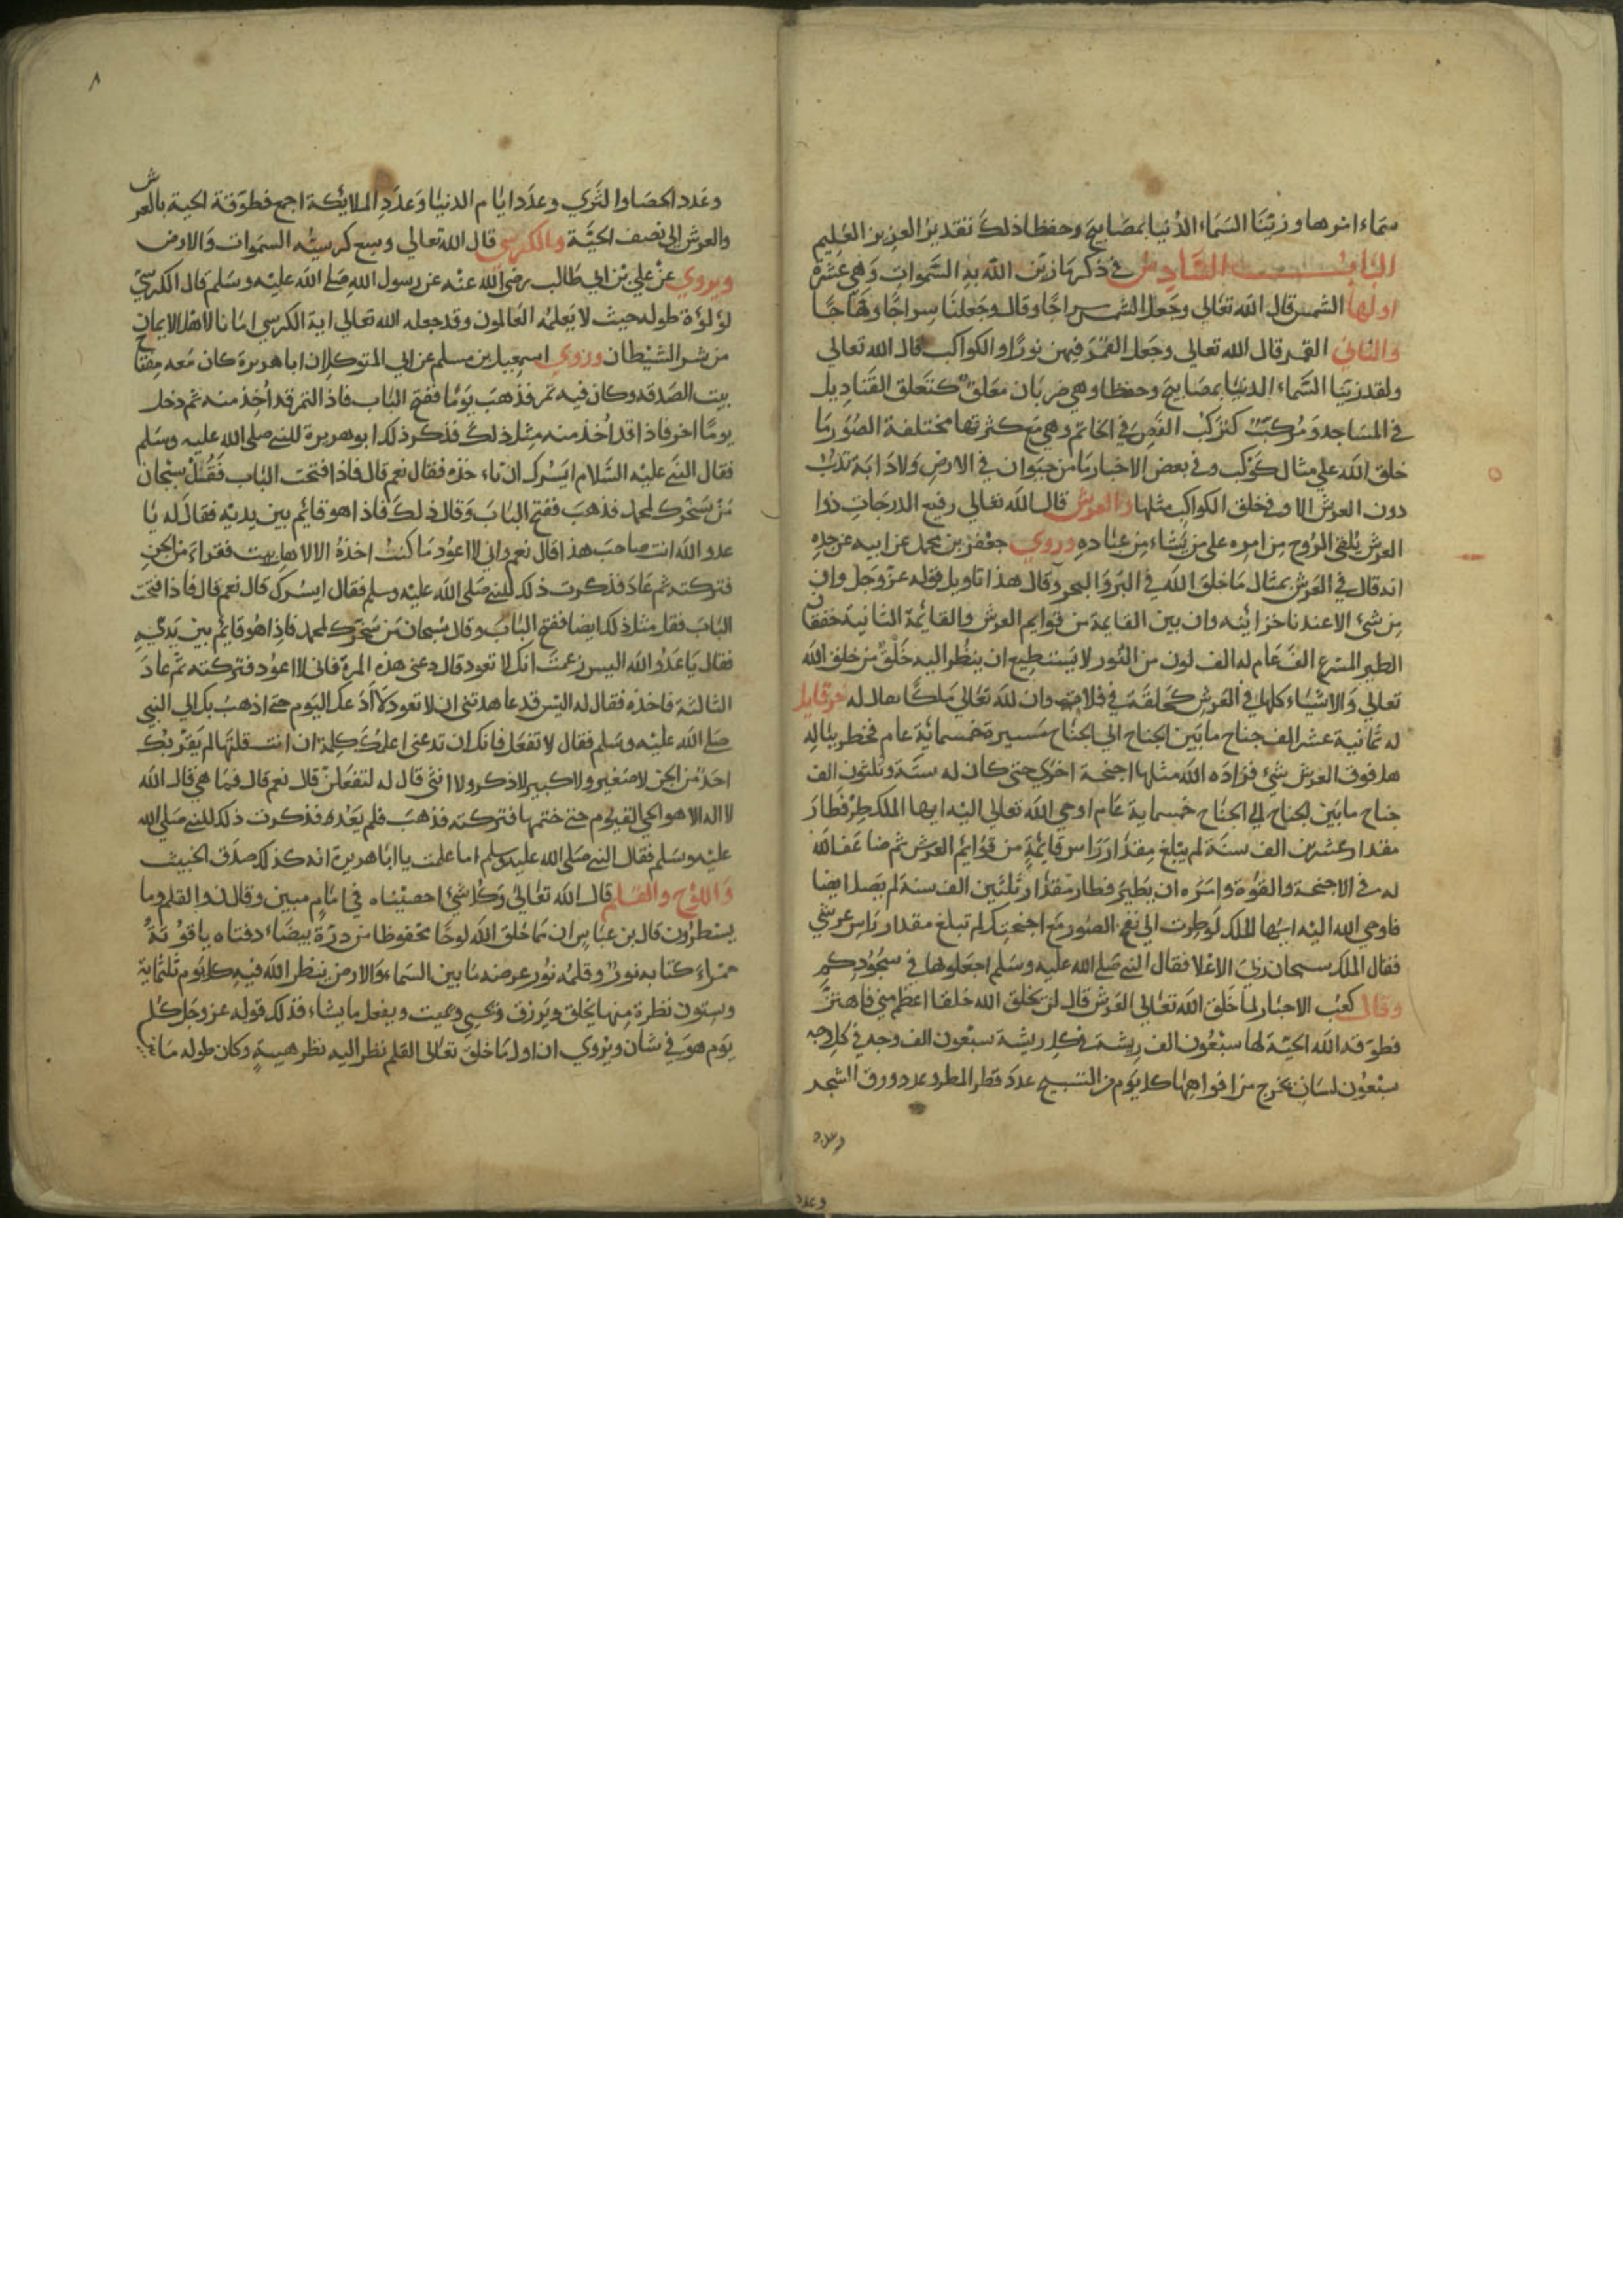 سماء امرها وزينا السماء الدنيا بمصابيح وحفظا ذلك تقدير العزيز العليم
الباب السادس في ذكر ما زين الله به السموات وهي عشرة
اولها الشمس قال الله تعالي وجعل الشمس سراجا وقال وجعلنا سراجا وهاجا
والثاني القمر قال الله تعالي وجعل القمر فيهن نورا والكواكب قال الله تعالي
ولقد زينا السماء الدنيا بمصابيح وحفظا وهي ضربان معلق كتعلق القناديل
في المساجد ومركب كتركب الفص في الخاتم وهي مع كثرتها مختلفة الصور ما
خلق الله علي مثال كوكب وفي بعض الاخبار ما من حيوان في الارض ولا دابة تدب
دون العرش الا وفي خلق الكواكب مثلها والعرش قال الله تعالي رفيع الدرجات ذوا
العرش يلقي الروح من امره علي من يشاء من عباده وروي جعفر بن محمد عن ابيه عن جده
انه قال في العرش تمثال ما خلق الله في البر والبحر وقال هذا تاويل قوله عز وجل وان
من شئ الا عندنا خزائنه وان بين القايمة من قوايم العرش والقايمة الثانية خفقان
الطير المسرع الف عام له الف لون من النور لا يستطيع ان ينظر اليه خلق من خلق الله
تعالي والاشياء كلها في العرش كحلقة في فلاة وان لله تعالي ملكا يقال له حرقايل
له ثمانية عشر الف جناح ما بين الجناح الي الجناح مسيرة خمسمائة عام فخطر بباله
هل فوق العرش شئ فزاده الله مثلها اجنحة اخري حتي كان له ستة وثلثون الف
جناح ما بين الجناح الي الجناح خمسماية عام اوحي الله تعالي اليه ايها الملك طر فطار
مقدار عشرين الف سنة لم يبلغ مقدار راس قائمة من قوائم العرش ثم ضاعف الله
له في الاجنحة والقوة وامره ان يطير فطار مقدار ثلثين الف سنة لم يصل ايضا
فاوحي الله اليه ايها الملك لو طرت الي نفخ الصور مع اجنحتك لم تبلغ مقدار راس عرشي
فقال الملك سبحان ربي الاعلا فقال النبي صلي الله عليه وسلم اجعلوها في سجودكم
وقال كعب الاحبار لما خلق الله تعالي العرش قال لن يخلق الله خلقا اعظم مني فاهتز
فطوقه الله الحية لها سبعون الف ريشة في كل ريشة سبعون الف وجه في كل وجه
سبعون لسان يخرج من افواهها كل يوم من التسبيح عدد قطر المطر وعدد ورق الشجر
وعدد
وعدد
٨
وعدد الحصا والثري وعدد ايام الدنيا وعدد الملايكة اجمع فطوقة الحية بالعرش
والعرش الي نصف الحية والكرسي قال الله تعالي وسع كرسيه السموات والارض
ويروي عن علي بن ابي طالب رضي الله عنه عن رسول الله صلي الله عليه وسلم قال الكرسي
لؤلؤة طوله حيث لا يعلمه العالمون وقد جعله الله تعالي اية الكرسي امانا لاهل الايمان
من شر الشيطان وروي اسمعيل بن مسلم عن ابي المتوكل ان ابا هريرة كان معه مفتاح
بيت الصدقة وكان فيه تمر فذهب يوما ففتح الباب فاذ التمر قد اخذ منه ثم دخل
يوما اخر فاذا قد اخذ منه مثل ذلك فذكر ذلك ابو هريرة للنبي صلي الله عليه وسلم
فقال النبي عليه السلام ايسرك ان تاخذه فقال نعم قال فاذا فتحت الباب فقل سبحان
من سخرك لمحمد فذهب ففتح الباب وقال ذلك فاذا هو قائم بين يديه فقال له يا
عدو الله انت صاحب هذا قال نعم واني لا اعود ما كنت اخذه الا لاهل بيت فقراء من الجن
فتركته ثم عاد فذكرت ذلك للنبي صلي الله عليه وسلم فقال ايسرك قال نعم قال فاذا فتحت
الباب فقل مثل ذلك ايضا ففتح الباب وقال سبحان من سخرك لمحمد فاذا هو قائم بين يديه
فقال يا عدو الله اليس زعمت انك لا تعود قال دعني هذه المرة فاني لا اعود فتركته ثم عاد
الثالثة فاخذه فقال له اليس قد عاهدتني ان لا تعود لا ادعك اليوم حتي اذهب بك الي النبي
صلي الله عليه وسلم فقال لا تفعل فانك ان تدعني اعلمك كلمة ان انت قلتها لم يقربك
احد من الجن لا صغير ولا كبير لا ذكر ولا انثي قال له لتفعلن قال نعم قال فما هي قال الله
لا اله الا هو الحي القيوم حتي ختمها فتركته فذهب فلم يعد فذكرت ذلك للنبي صلي الله
عليه وسلم فقال النبي صلي الله عليه وسلم اما علمت يا ابا هريرة انه كذلك صدق الخبيث
واللوح والقلم قال الله تعالي وكل شئ احصيناه في امام مبين وقال ن والقلم وما
يسطرون قال بن عباس ان مما خلق الله لوحا محفوظا من درة بيضاء دفتاه ياقوتة
حمراء كتابه نور وقلمه نور عرضه ما بين السماء والارض ينظر الله فيه كل يوم ثلثماية
وستون نظرة منها يخلق ويرزق ويحيي ويميت ويفعل ما يشاء فذلك قوله عز وجل كل
يوم هو في شان ويروي ان اول ما خلق تعالي القلم نظر اليه نظر هيبة وكان طوله ماية